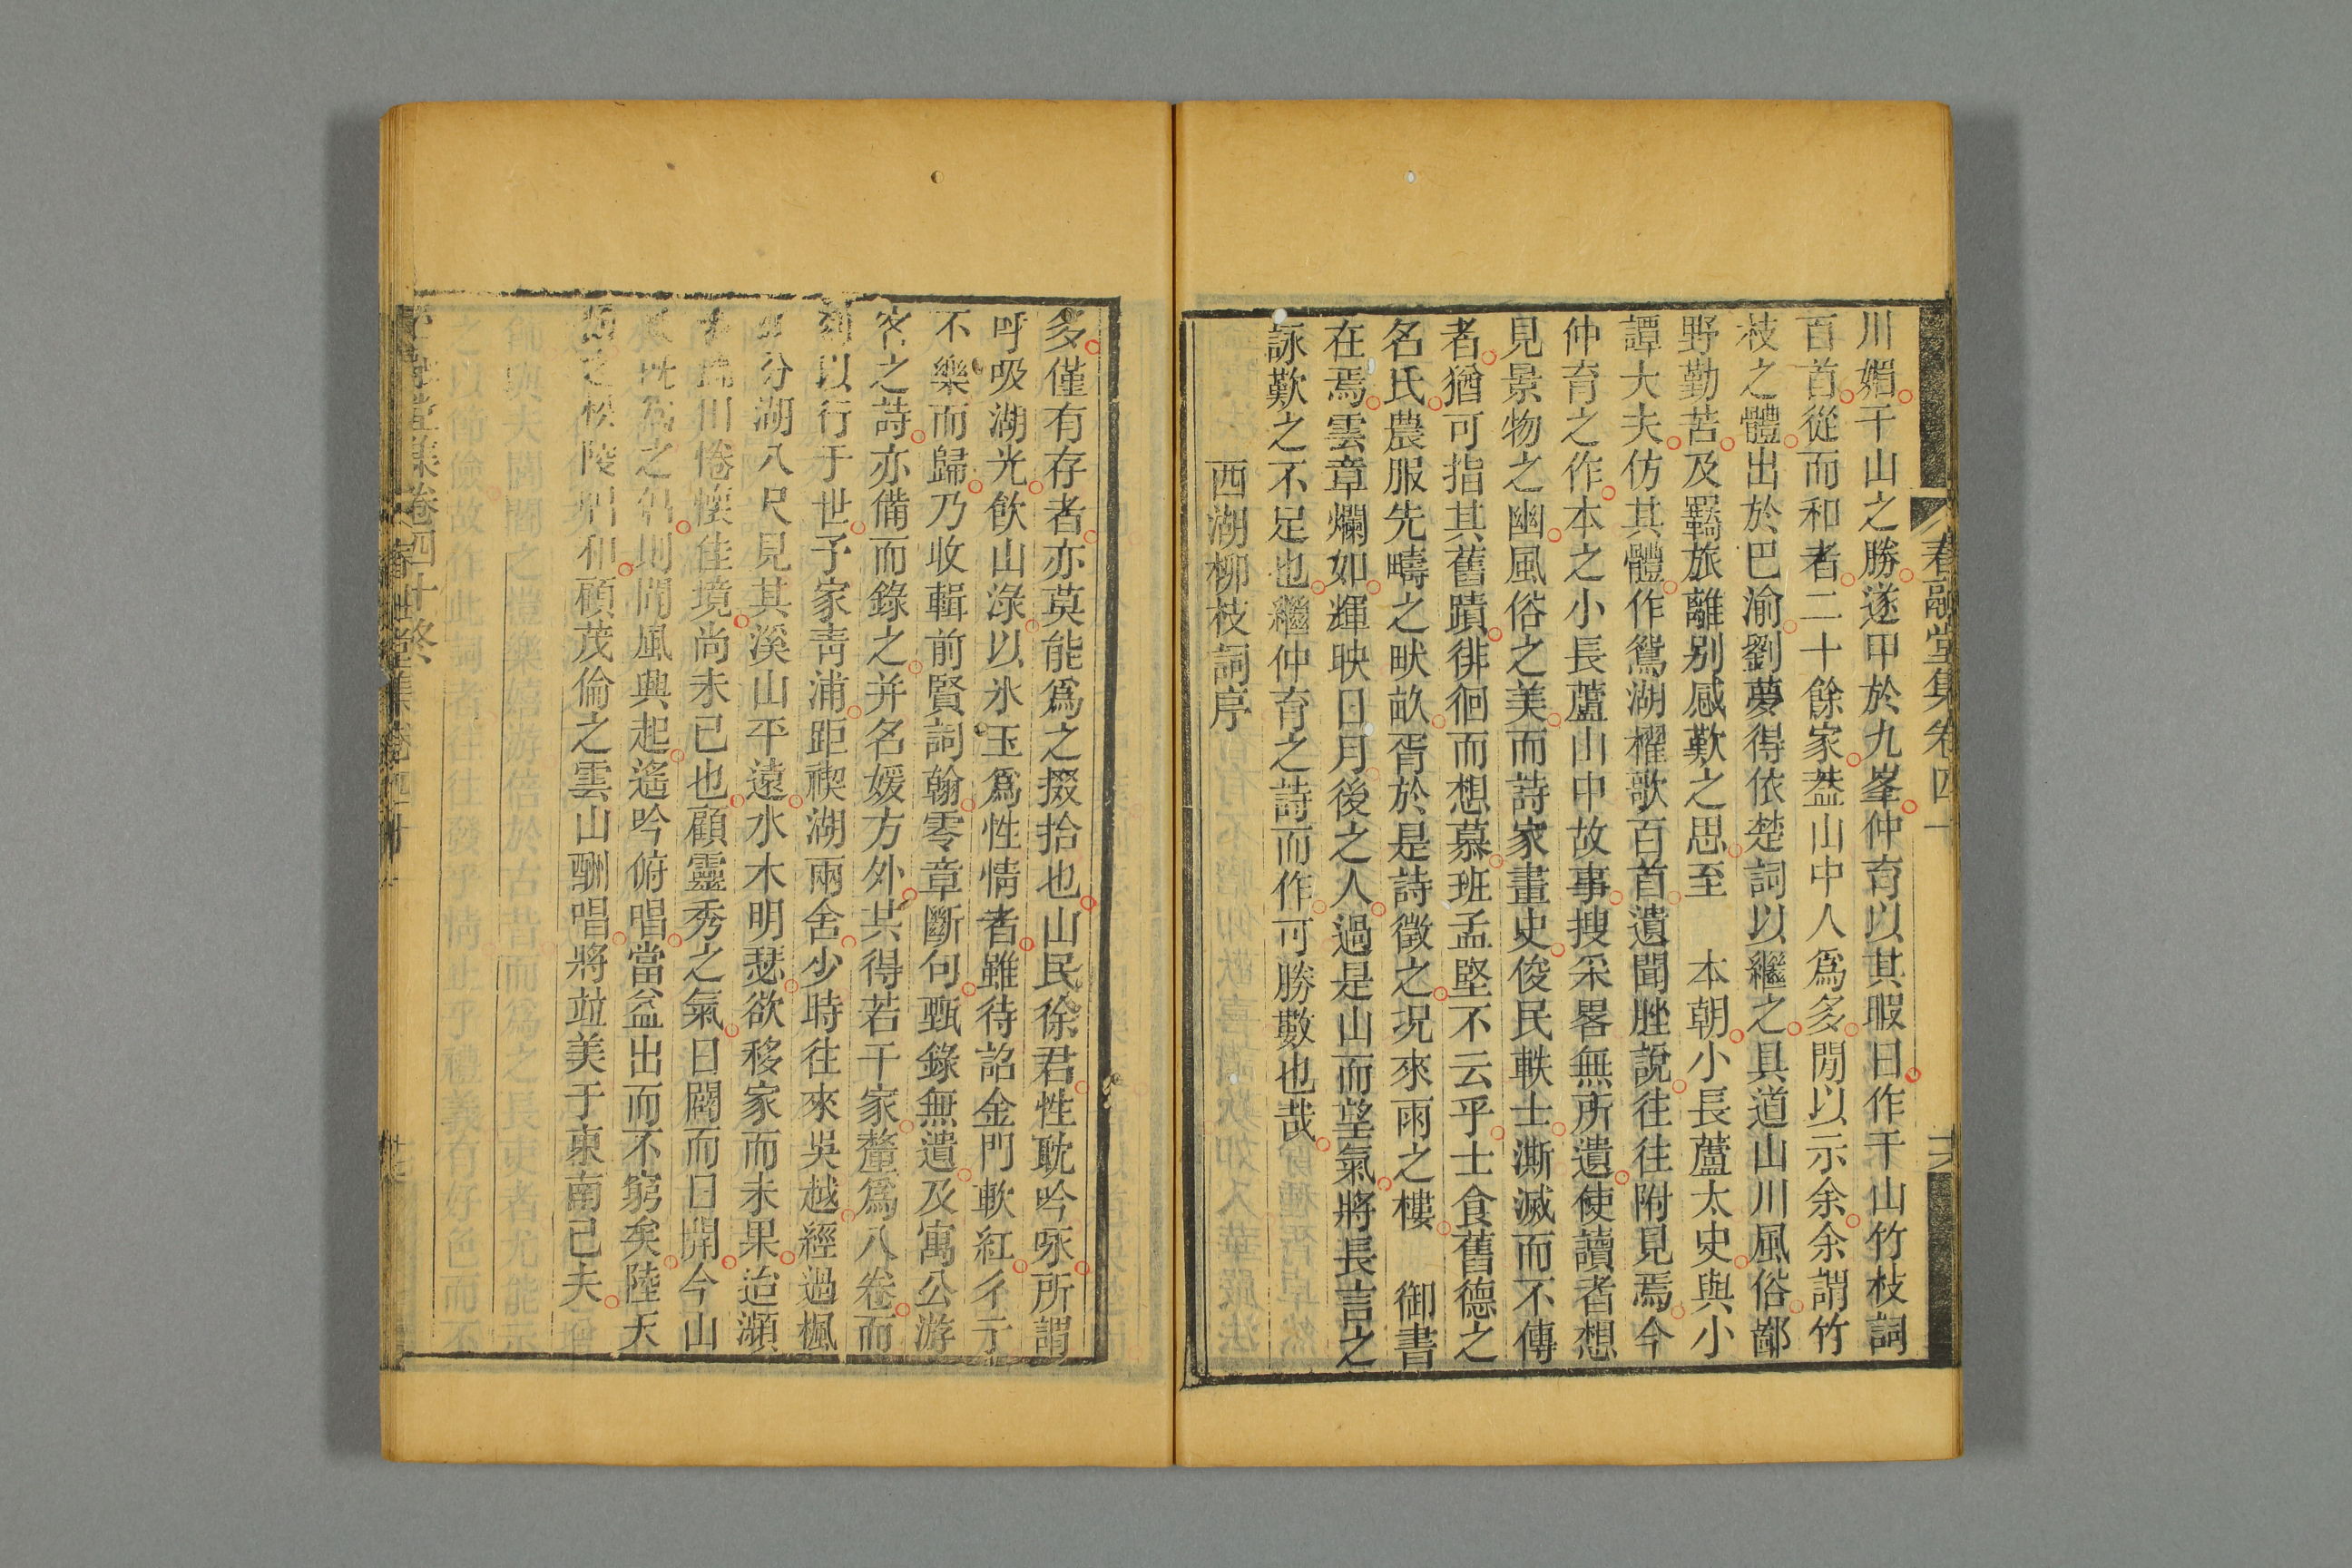 春融堂集卷四十
川媚干山之勝遂甲於九峯仲育以其暇日作干山竹枝詞
百首從而和者二十餘家葢山中人爲多閒以示余余謂竹
枝之體出於巴渝劉夢得依楚詞以繼之具道山川風俗鄙
野勤苦及羇旅離别感歎之思至　本朝小長蘆太史與小
譚大夫仿其體作鴛湖櫂歌百首遺聞脞說往往附見焉今
仲育之作本之小長蘆山中故事搜采畧無所遺使讀者想
見景物之幽風俗之美而詩家畫史俊民軼士澌滅而不傳
者猶可指其舊蹟徘徊而想慕班孟堅不云乎士食舊德之
名氏農服先疇之畎畝胥於是詩徵之况來雨之樓　御書
在焉雲章爛如輝映日月後之人過是山而望氣將長言之
詠歎之不足也繼仲育之詩而作可勝數也哉
西湖柳枝詞序
多僅有存者亦莫能爲之掇拾也山民徐君性耽吟咏所謂
呼吸湖光飲山淥以氷玉爲性情者雖待詔金門軟紅彳亍
不樂而歸乃收輯前賢詞翰零章斷句甄錄無遺及寓公游
客之詩亦備而錄之并名媛方外共得若干家釐爲八卷而
刻以行于世予家靑浦距禊湖兩舍少時往來吳越經過楓
分湖八尺見其溪山平遠水木明瑟欲移家而未果迨瀕
川惓懷佳境尚未已也顧靈秀之氣日闢而日開今山
旣爲之倡則聞風興起遙吟俯唱當益出而不窮矣陸天
之松陵倡和顧茂倫之雲山酬唱將竝美于東南已夫
春融堂集卷四十終